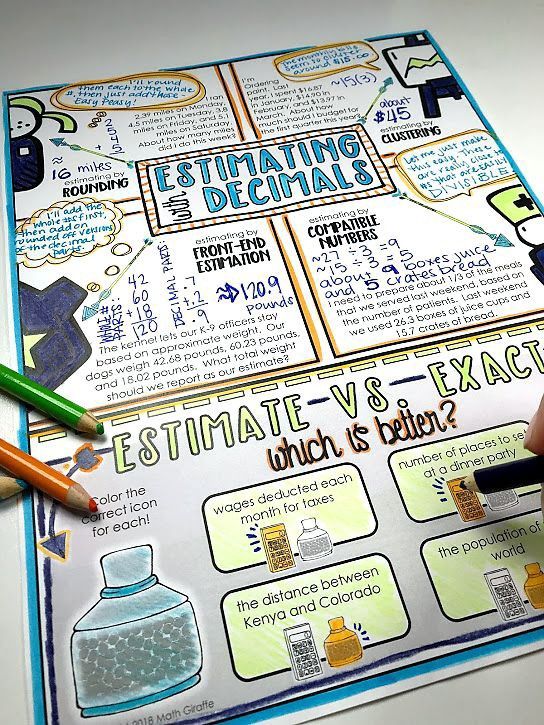 I'll round
them each to the whole
#, then just add those
Easy Peasy!
I ran
2.39 miles on Monday,
4.5 miles on Tuesday, 3.8
miles on Friday, and 5.1
miles on Saturday.
About how many miles
did I do this week?
2+5+4+5
≈
16 miles
estimating by
ROUNDING
I'm
Ordering
paint. Last
year, I spent $16.87
in January, $14.90 in
February, and $13.97 in
March. About how
much should I budget for
the first quarter this year?
The monthly bills
seem to cluster
around $15.00
~15(3)
about
$45
estimating by
CLUSTERING
ESTIMATING
with DECIMALS
Let me just make
this easy. These
are really close to
#s that are easily
DIVISIBLE
I'll add the
whole #s first,
then add on
rounded off versions
of the decimal
parts.
estimating by
FRONT-END
ESTIMATION
WHOLE # PARTS
42
60
+18
120
DECIMAL PARTS
.7
.2
.9
≈120.9
Pounds
The kennel lets our K-9 officers stay
based on approximate weight. Our
dogs weigh 42.68 pounds, 60.23 pounds,
and 18.02 pounds. What total weight
should we report as our estimate?
estimating by
COMPATIBLE
NUMBERS
~27 ÷ 3 = 9
~15 ÷ 3 = 5
about 9 boxes juice
and 5 crates bread
I need to prepare about 1/3 of the meals
that we served last weekend, based on
the number of patients. Last weekend
we used 26.3 boxes of juice cups and
15.7 crates of bread.
ESTIMATE - VS. - EXACT
which is better?
Color the
correct icon
for each!
wages deducted each
month for taxes
number of places to se
at a dinner party
the distance between
Kenya and Colorado
the population of
world
2018 Math Giraffe